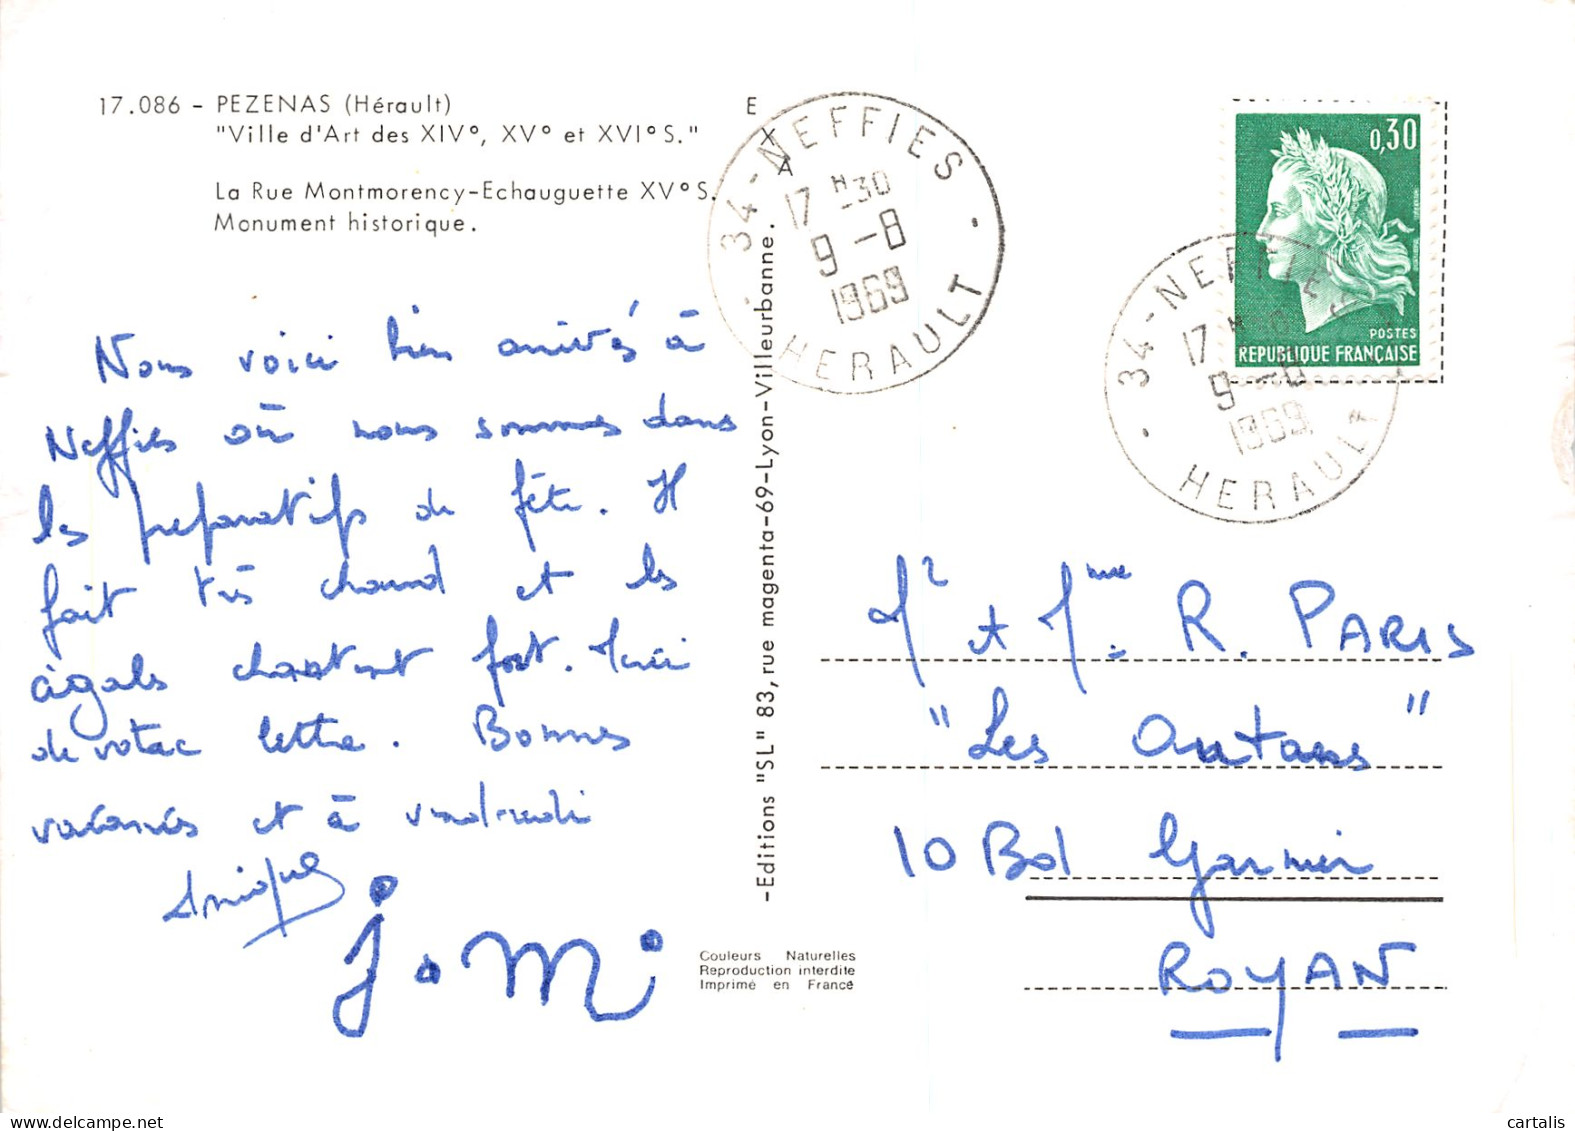 17.086 - PEZENAS (Hérault)
"Ville d'Art des XIV°, XV° et XVI° S."
La Rue Montmorency-Echauguette XV° S.
Monument historique.
Nous voici bien arrivés à
Neffiès où nous sommes dans
les préparatifs de fête. Il
fait très chaud et les
cigales chantent fort. Merci
de votre lettre. Bonnes
vacances et à vendredi
E
34-NEFFIES
17 H 30
9 -8
1969
HERAULT
-Editions "SL" 83, rue magenta-69-Lyon-Villeurbanne.
Couleurs Naturelles
Reproduction interdite
Imprimé en France
0,30
POSTES
REPUBLIQUE FRANÇAISE
34-NEFFIES
17 H
9 -8
1969
HERAULT
Mr et Mme R. PARIS
"Les Autans"
10 Bd Garnier
ROYAN
cartalis